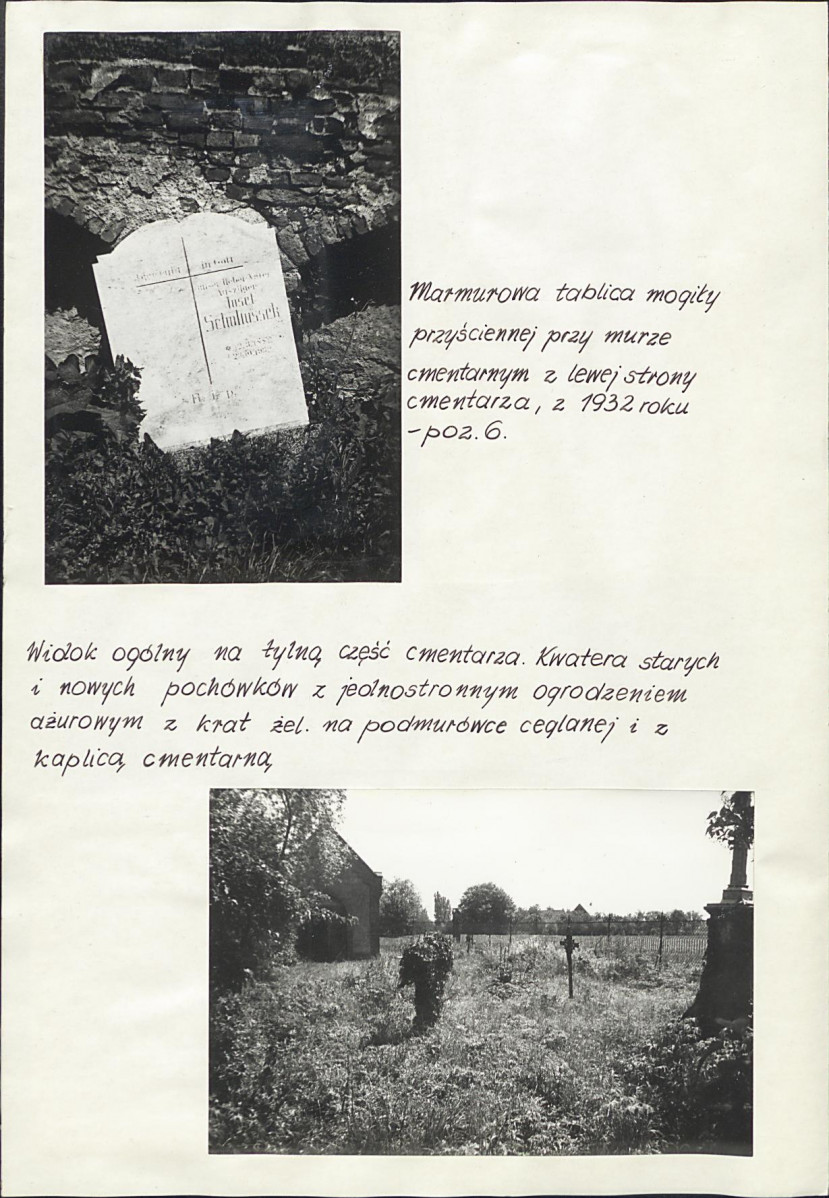 in Gott
Josef
Schuhussek
Marmurowa tablica mogiły
przyściennej przy murze
cmentarnym z lewej strony
cmentarza, z 1932 roku
-poz. 6.
Widok ogólny na tylną część cmentarza. Kwatera starych
i nowych pochówków z jednostronnym ogrodzeniem
ażurowym z krat żel. na podmurówce ceglanej i z
kaplicą cmentarną